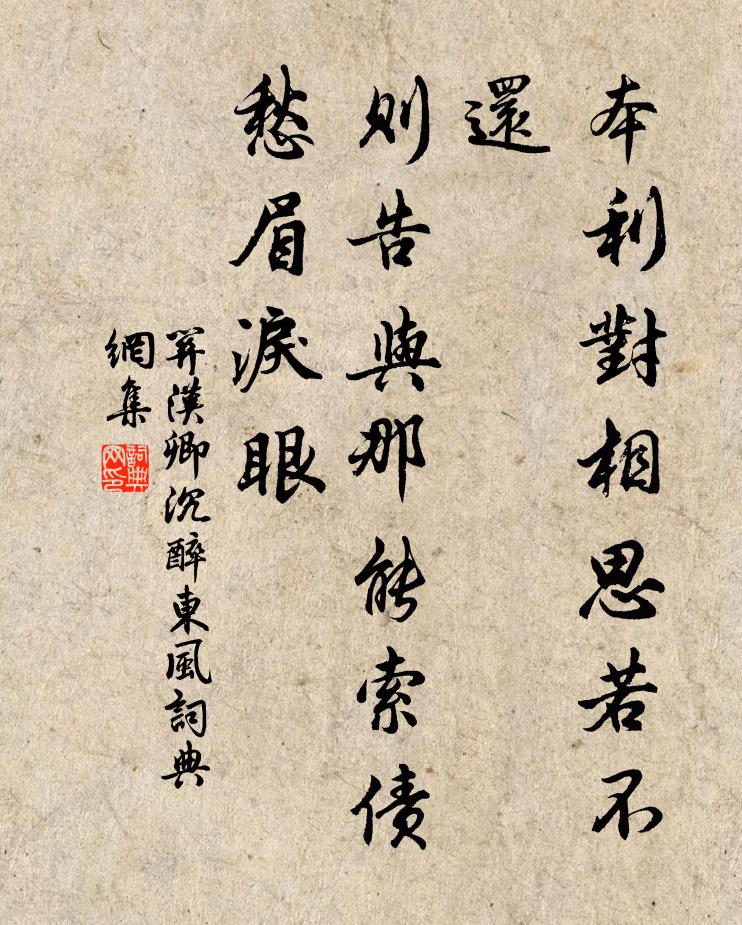 本利對相思若不
還
則告與那能索債
愁眉淚眼
关漢卿沉醉東風詞典
網集
詞典
网印